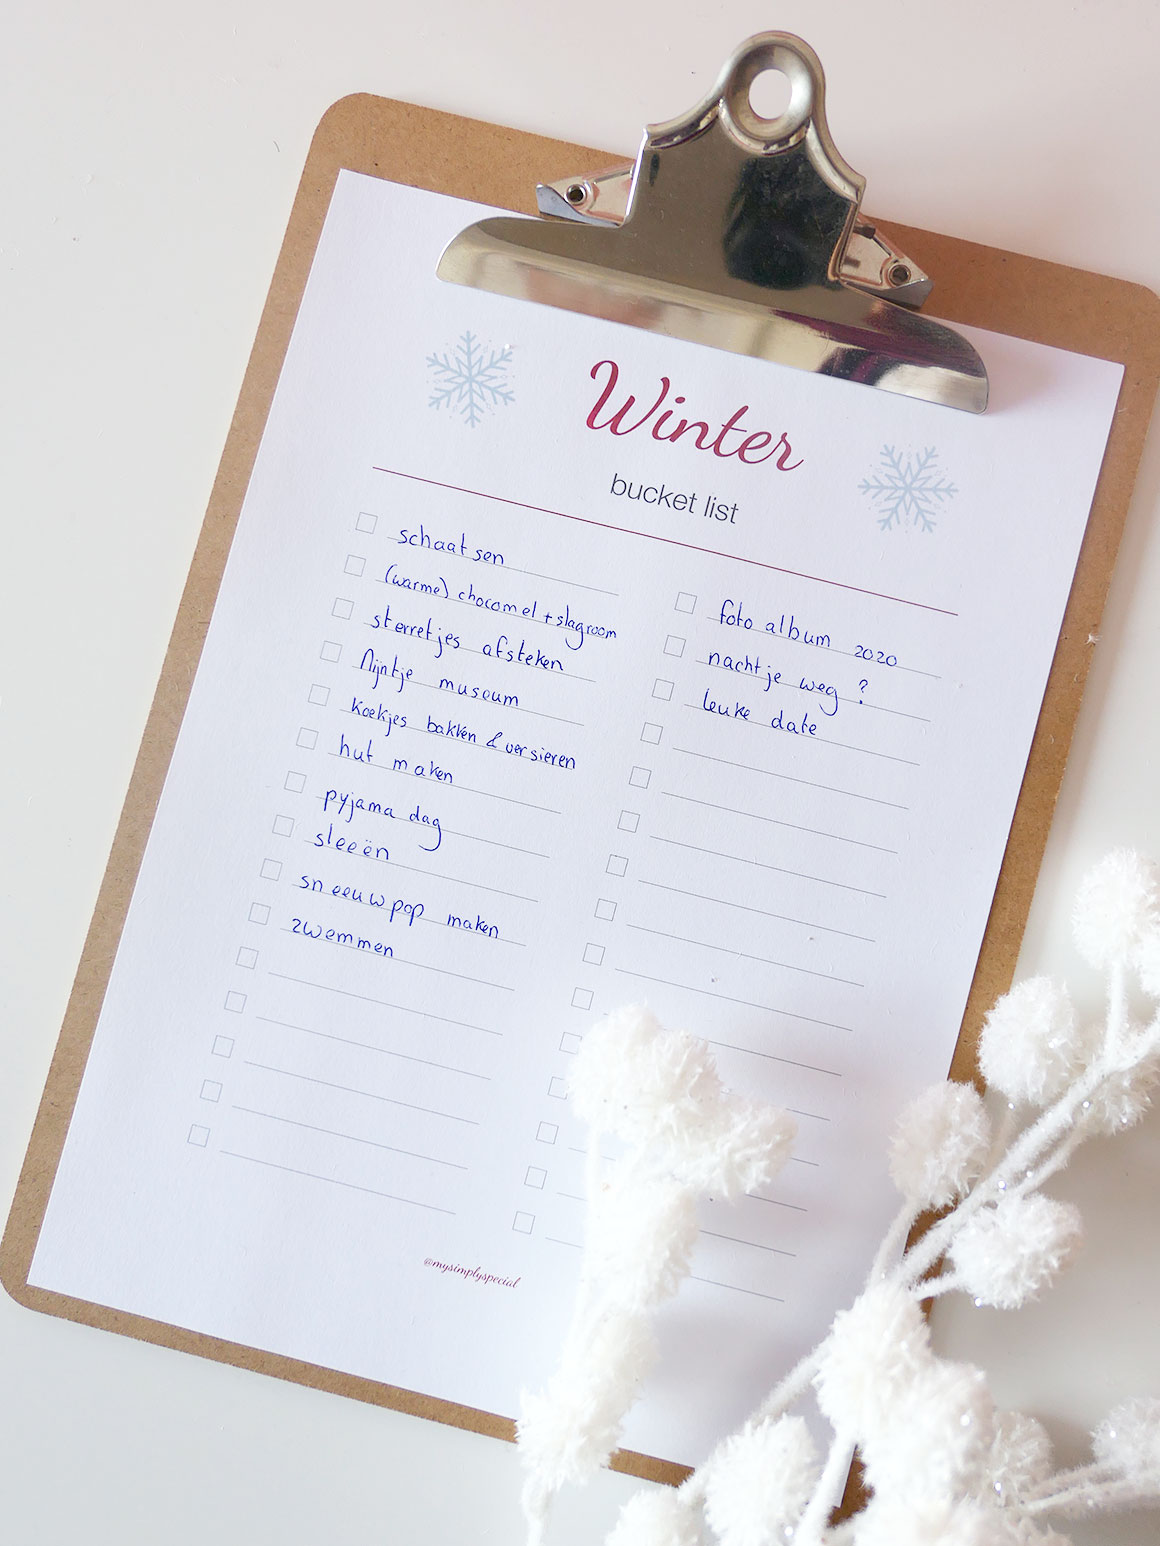 Winter
bucket list
schaatsen
(warme) chocomel + slagroom
sterretjes afsteken
Nijntje museum
koekjes bakken & versieren
hut maken
pyjama dag
sleeën
sneeuwpop maken
zwemmen
foto album 2020
nachtje weg ?
leuke date
@mysimplyspecial